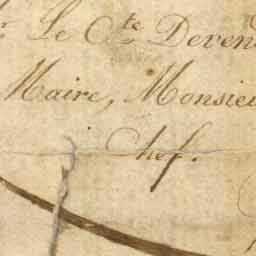 Le Cte Deven
Maire, Monsieu
Chef.